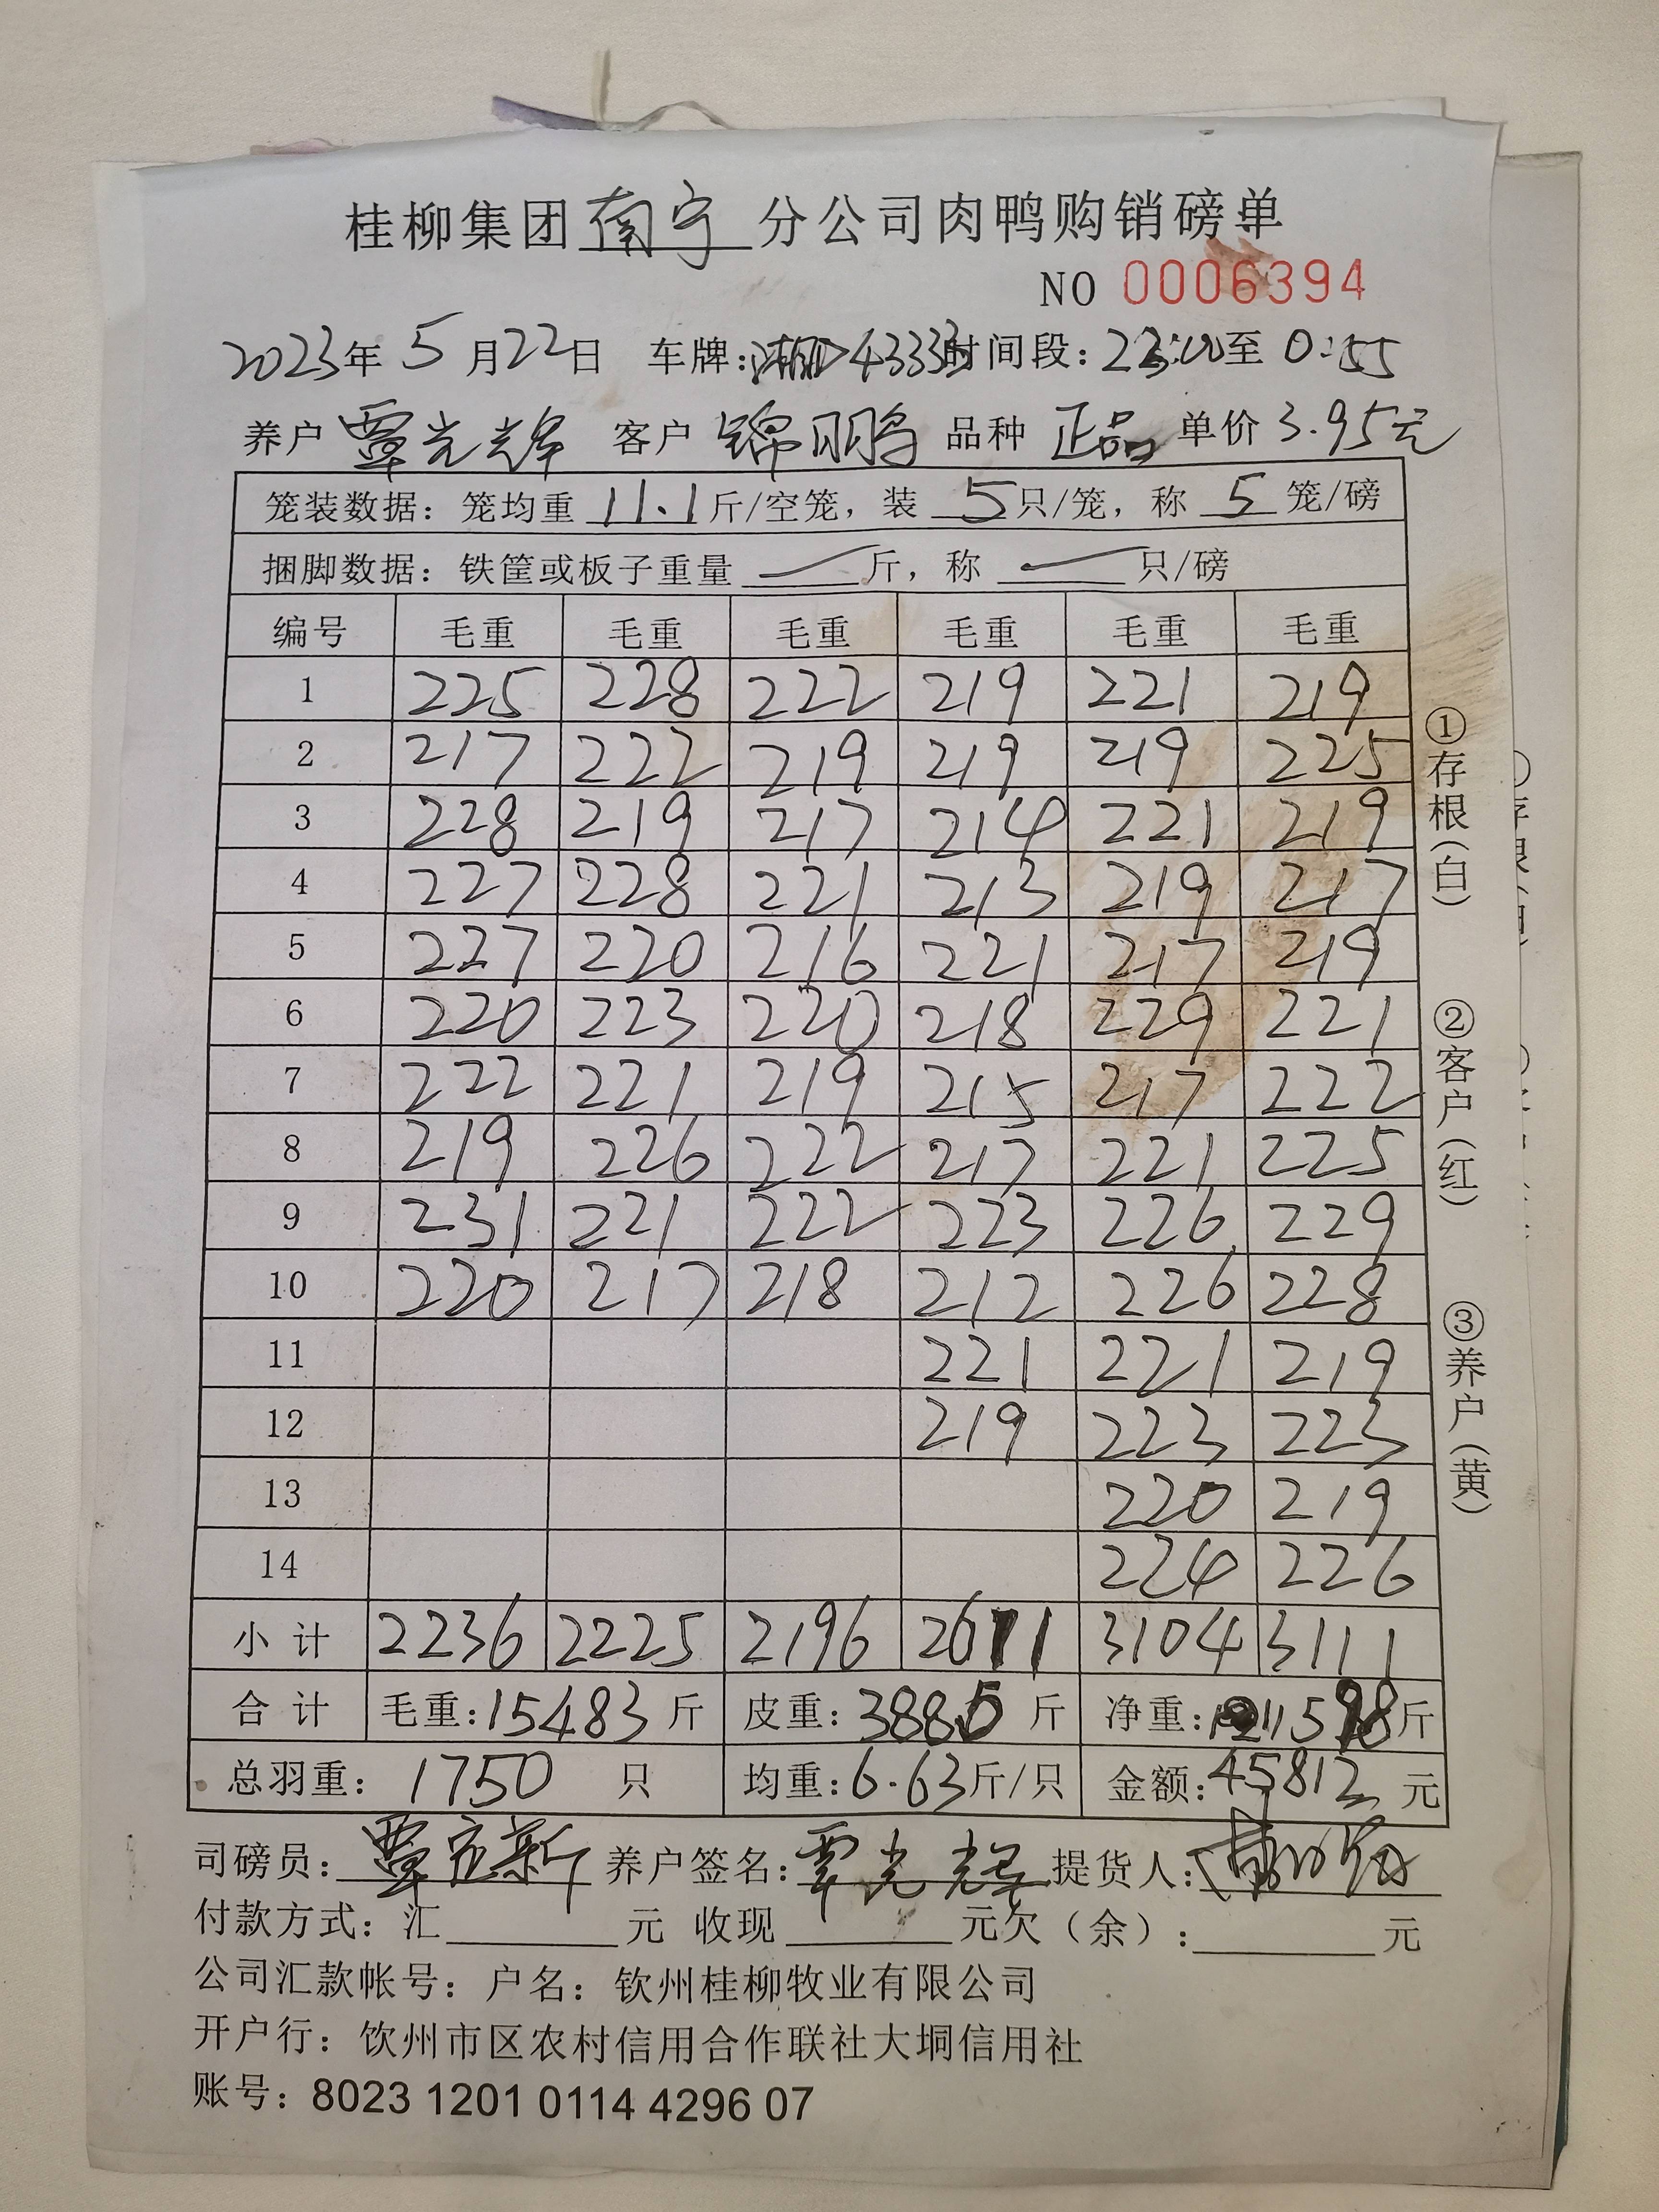 桂柳集团南宁分公司肉鸭购销磅单
NO 0006394
2023年5月22日 车牌:湘D43333 时间段:23:00至0:55
养户 覃光辉 客户 锦鹏 品种 正品 单价 3.95元
笼装数据：笼均重 11.1 斤/空笼，装 5 只/笼，称 5 笼/磅
捆脚数据：铁筐或板子重量 — 斤，称 — 只/磅
编号 毛重 毛重 毛重 毛重 毛重 毛重
1 225 228 222 219 221 219
2 217 222 219 219 219 225
3 228 219 217 214 221 219
4 227 228 221 213 219 217
5 227 220 216 221 217 219
6 220 223 220 218 229 221
7 222 221 219 215 217 222
8 219 226 222 217 221 225
9 231 221 222 223 226 229
10 220 217 218 212 226 228
11 221 221 219
12 219 223 223
13 220 219
14 224 226
小计 2236 2225 2196 2611 3104 3111
合计 毛重:15483 斤 皮重:3885 斤 净重:11598斤
总羽重: 1750 只 均重:6.63斤/只 金额:45812 元
司磅员:覃 新 养户签名:覃光辉 提货人:
付款方式：汇 元 收现 元欠（余）: 元
公司汇款帐号：户名：钦州桂柳牧业有限公司
开户行：饮州市区农村信用合作联社大垌信用社
账号：8023 1201 0114 4296 07
①存根(白)
②客户(红)
③养户(黄)